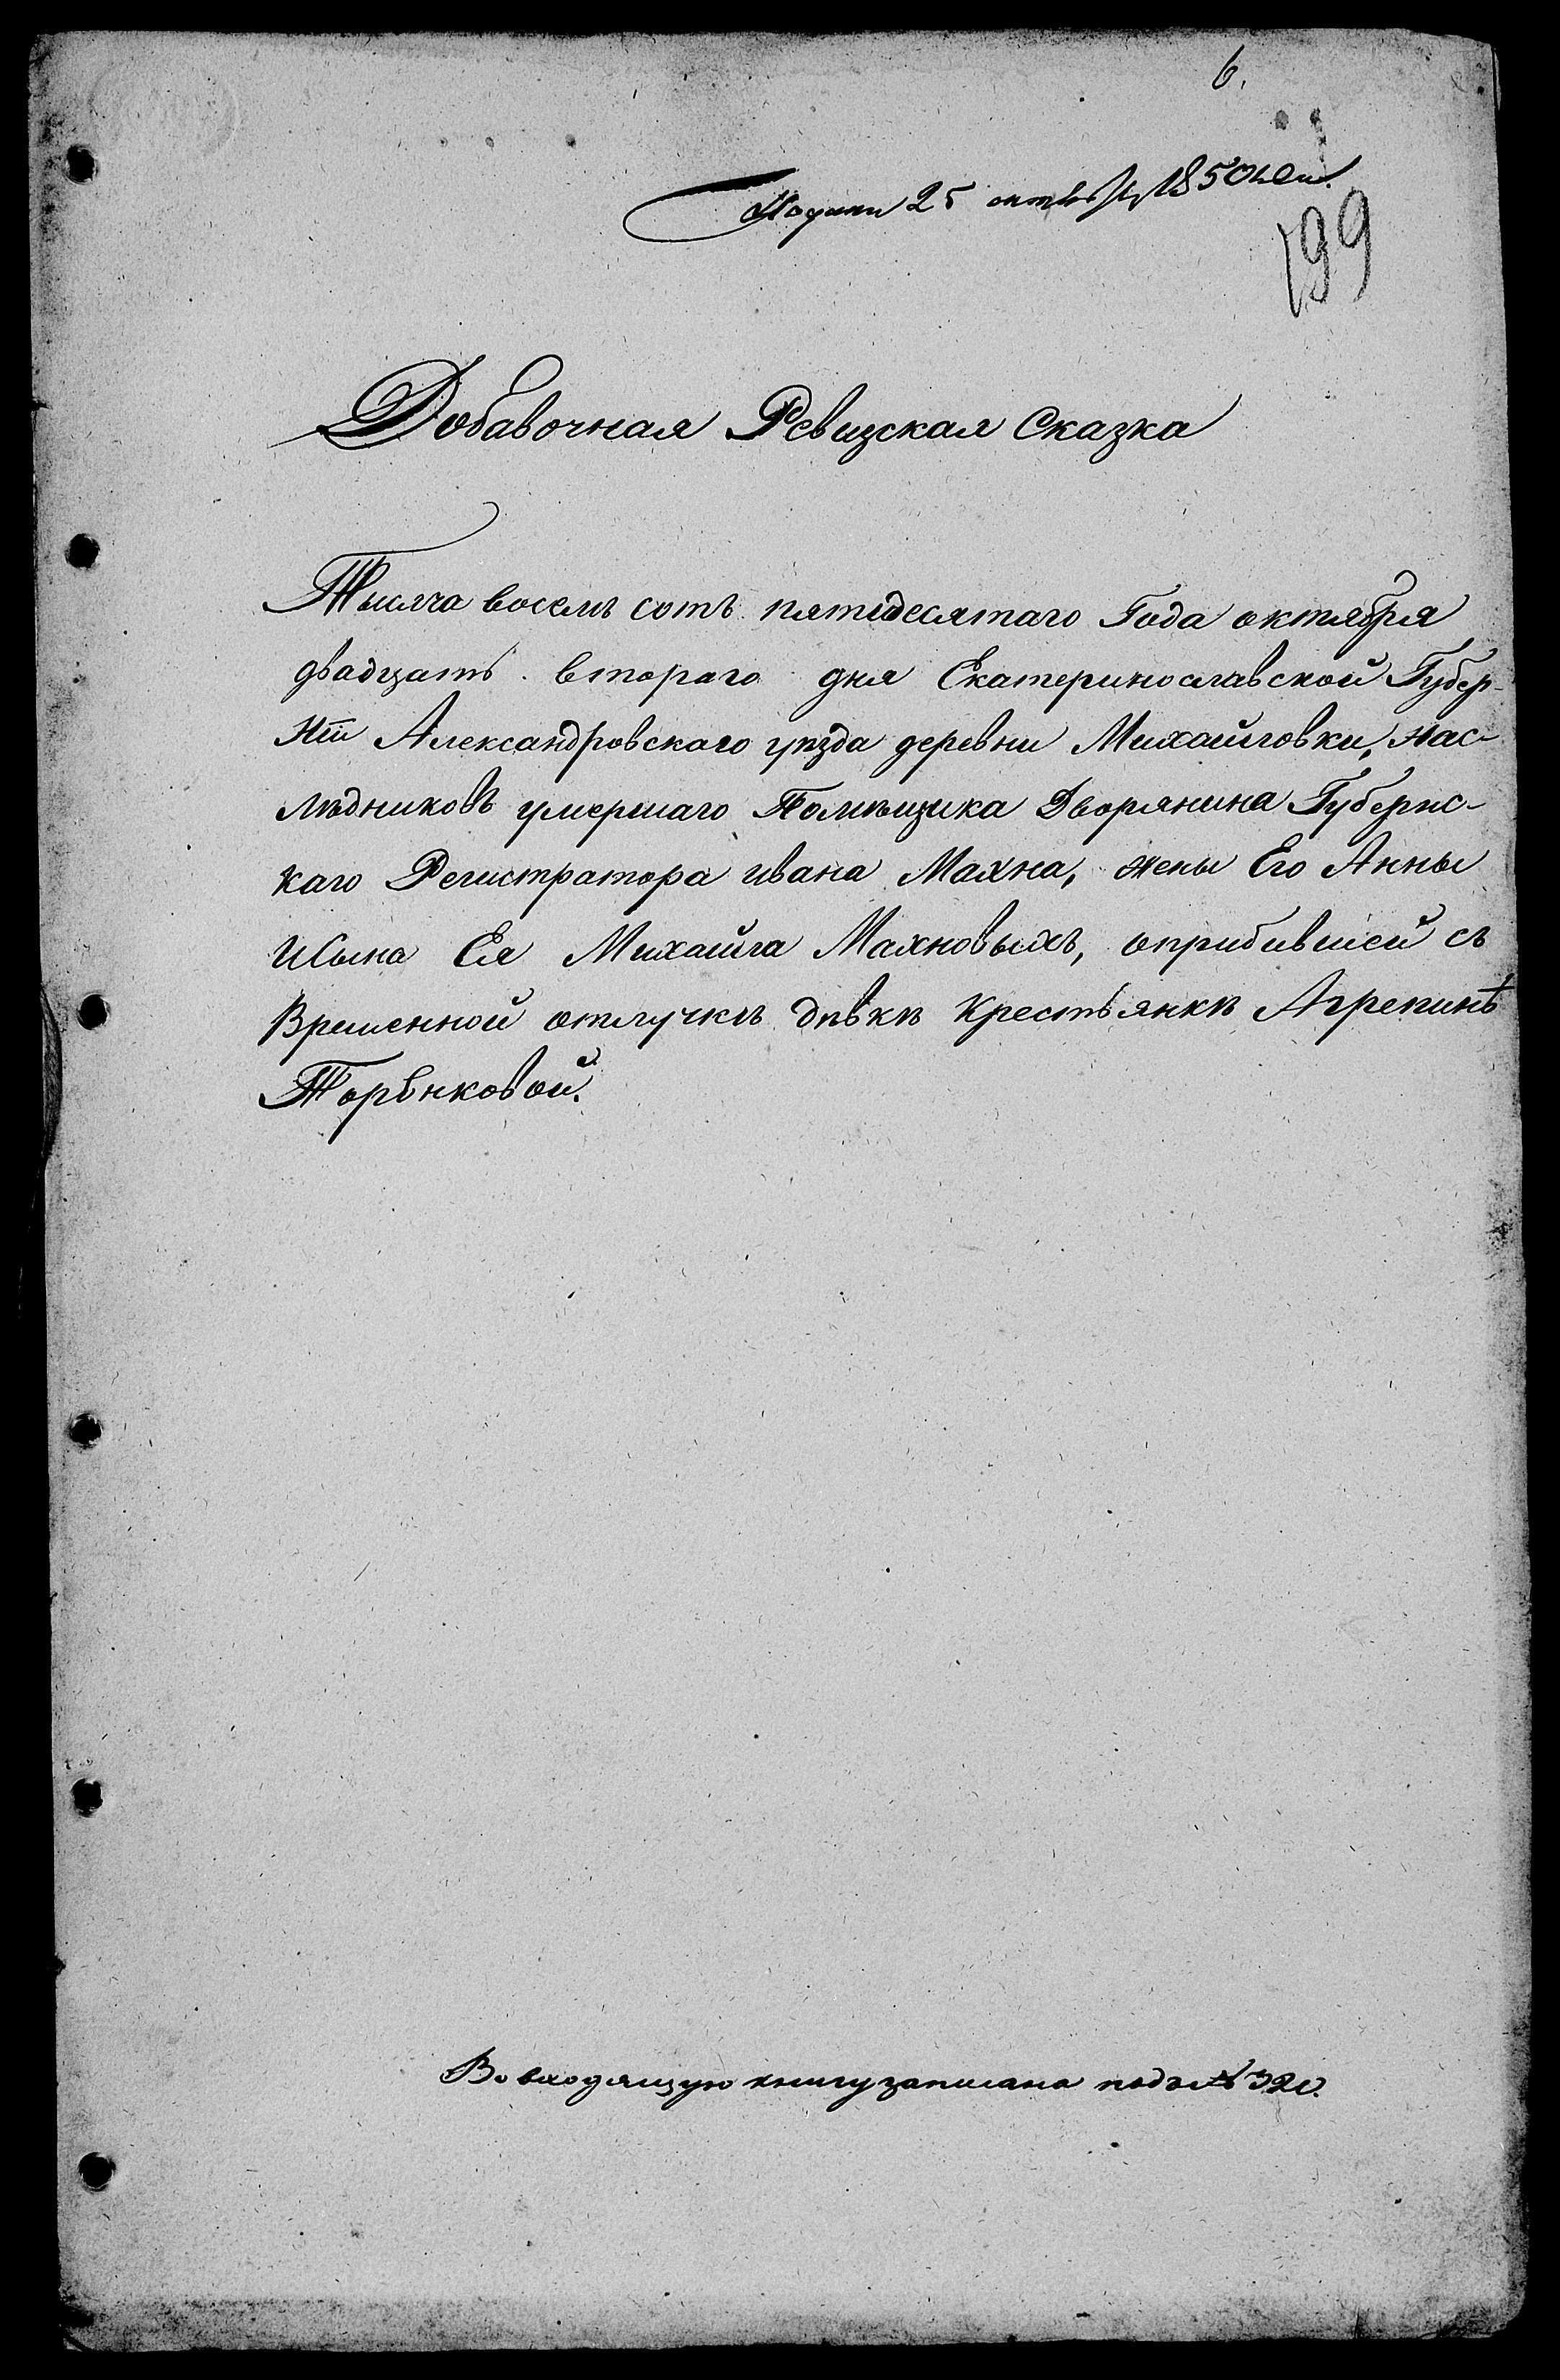 6.
25 октября 1850 года
199
Добавочная Ревизская Сказка
Тысяча восемь сотъ пятидесятаго Года октября
двадцать втораго дня Екатеринославской Губер-
ніи Александровскаго уѣзда деревни Михайловки, нас-
лѣдниковъ умершаго Помѣщика Дворянина Губернс-
каго Регистратора ивана Махна, жены Его Анны
и Сына Ея Михайла Махновыхъ, оприбившей съ
Временной отлучкѣ дѣвкѣ Крестьянкѣ Агрепинѣ